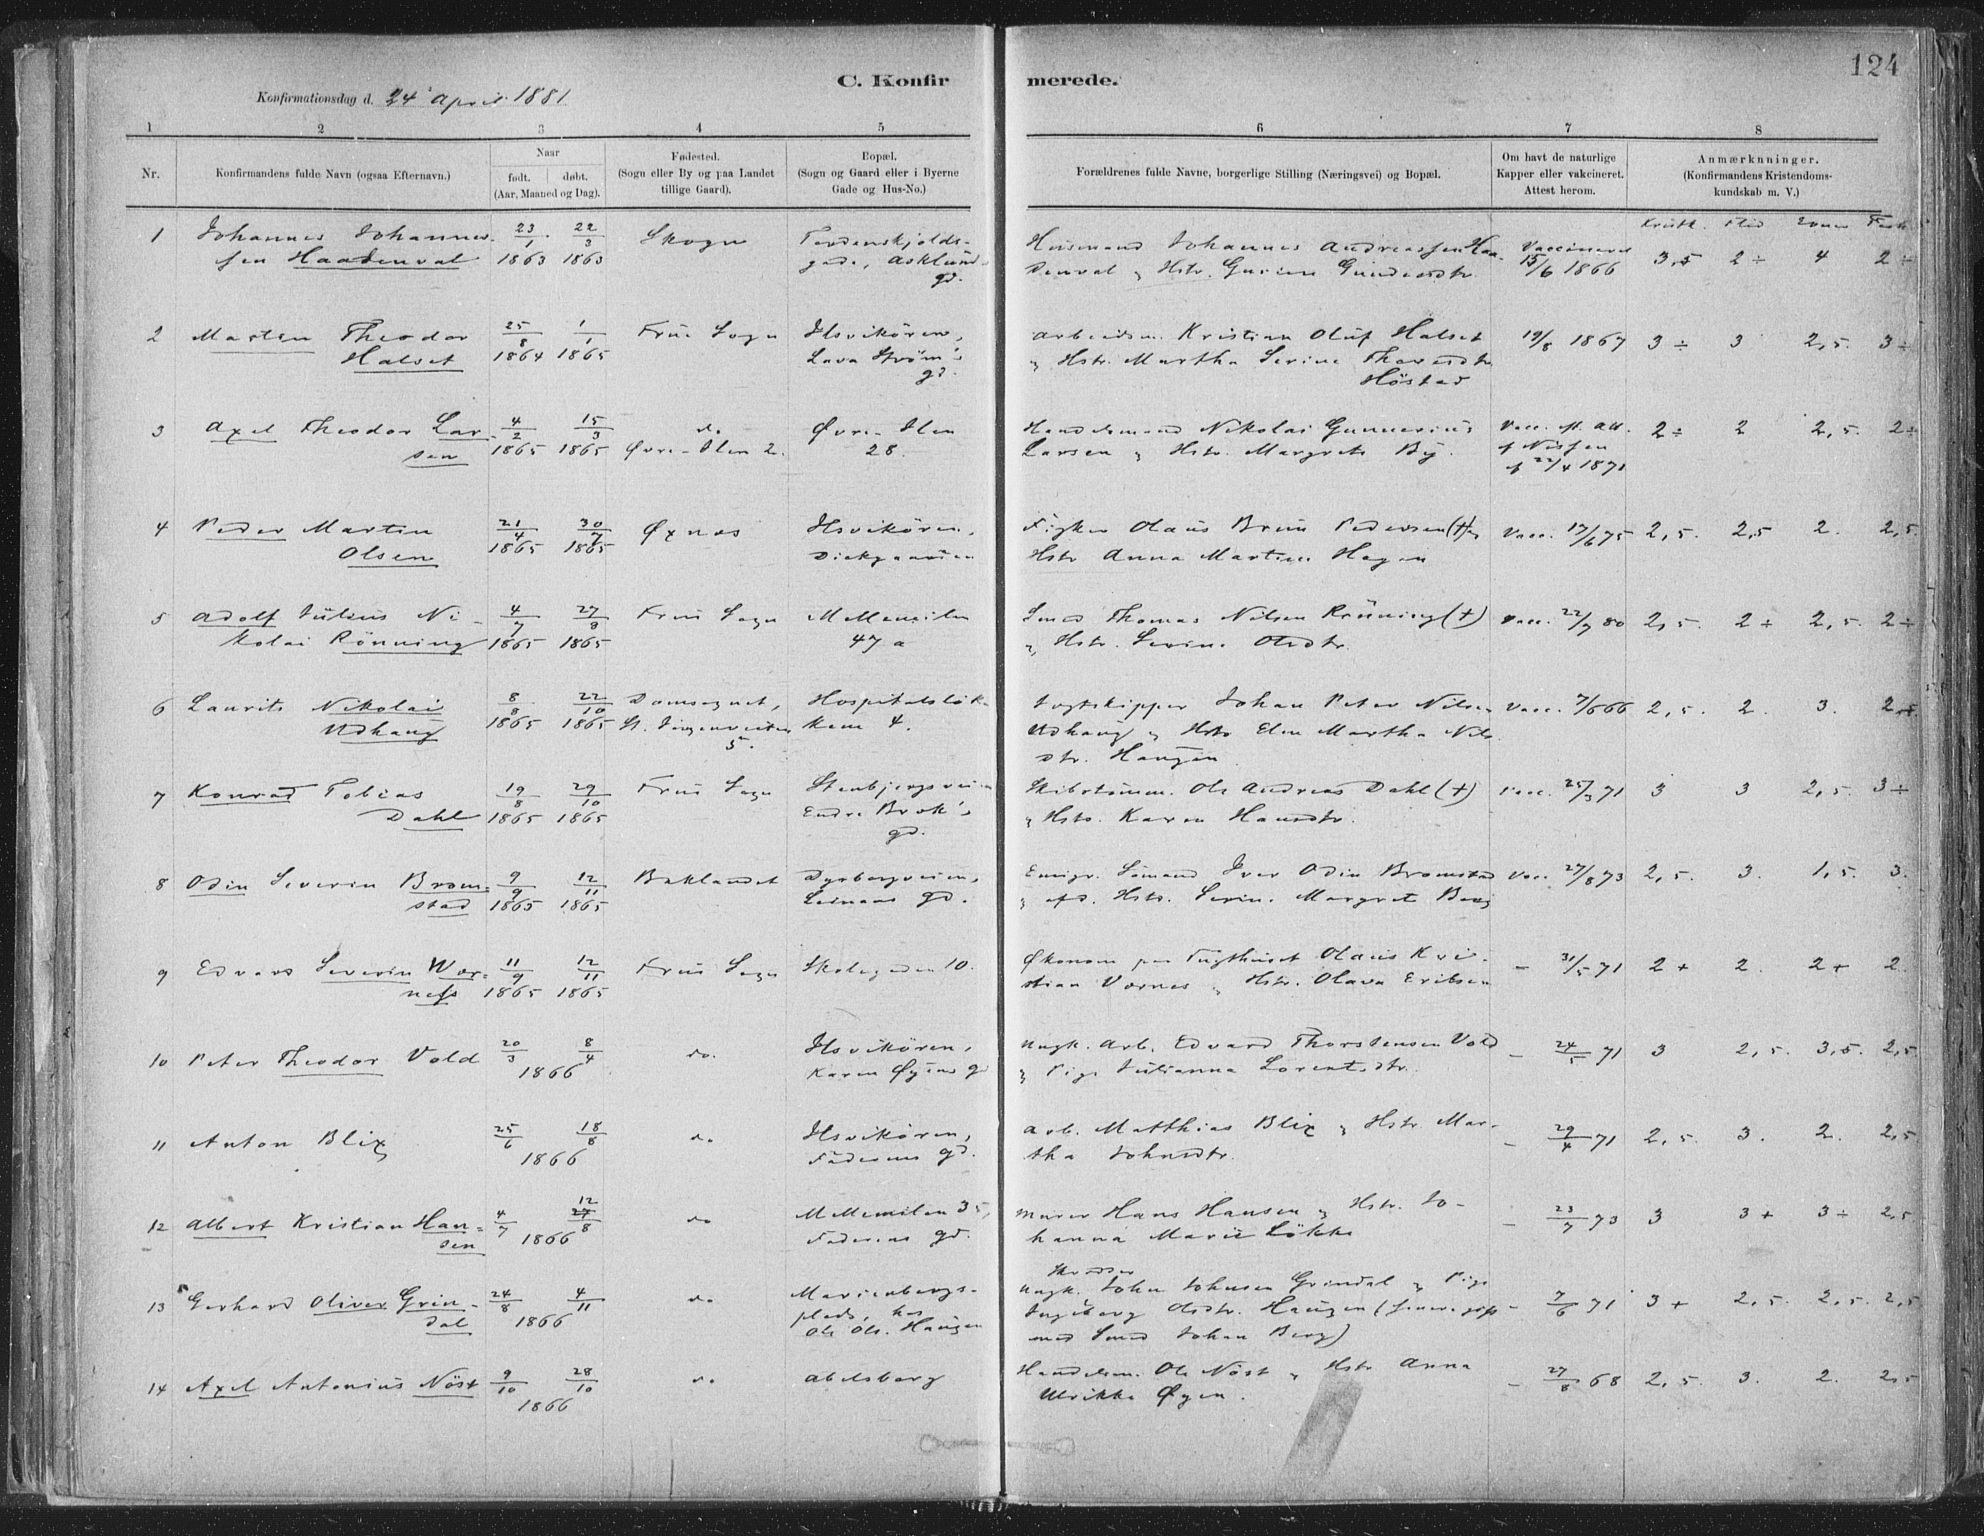 124
C. Konfirmerede.
Konfirmationsdag d. 24 april 1881
1 2 3 4 5 6 7 8
Nr.
Konfirmandens fulde Navn (ogsaa Efternavn.)
Naar
født. døbt.
(Aar, Maaned og Dag).
Fødested.
(Sogn eller By og paa Landet
tillige Gaard).
Bopæl.
(Sogn og Gaard eller i Byerne
Gade og Hus-No.)
Forældrenes fulde Navne, borgerlige Stilling (Næringsvei) og Bopæl.
Om havt de naturlige
Kapper eller vakcineret.
Attest herom.
Anmærknninger.
(Konfirmandens Kristendoms-
kundskab m. V.)
Kristk. Flid
1 Johannes Johannes- 23/1 22/3 Skogn Tordenskjolds- Husmand Johannes Andreassen Haa- Vaccineret
sen Haadenval 1863 1863 gade, Asklund gd. denval & Hstr. 15/6 1866 3,5 2 ÷ 4 2 ÷
2 Morten Theodor 25/8 1/1 Frue Sogn Ilsvikören, arbeidsm. Kristian Oluf Halset 19/8 1867 3 ÷ 3 2,5. 3 ÷
Halset 1864 1865 Lava Ström's gd. & Hstr. Martha Serine
Höstad
3 Axel Theodor Lar- 4/2 15/3 do Øvre-Ilen Handelsmand Nikolai Gunnerius Vacc. 2 ÷ 2 2,5. 2 ÷
sen 1865 1865 Øvre-Ilen 2. 28. Larsen & Hstr. Margrete By. af Nissen
af 22/4 1871
4 Peder Martin 21/4 30/7 Øxnes Ilsvikören, Olaus Brun Pedersen (†) & Vacc. 17/6 75 2,5. 2,5 2. 2,5.
Olsen 1865 1865 Hstr Anna Martine Hagen
5 Adolf Julius Ni- 4/7 27/8 Frue Sogn Mellemilen Smed Thomas Nilsen Rönning (†) Vacc. 22/7 80 2,5. 2 ÷ 2,5. 2 ÷
kolai Rönning 1865 1865 47 a & Hstr. Serine Olsdtr.
6 Laurits Nikolai 8/8 22/10 Domsognet, Hospitalslök- Jagtskipper Johan Peter Nilsen Vacc. 7/6 66 2,5. 2. 3.
Udhaug 1865 1865 5. kem 4. Udhaug & Hstr Elen Martha Nils
dtr. Haugen
7 Konrad Tobias 19/8 29/10 Frue Sogn Stenbjergsveien Skibstömm. Ole Andreas Dahl (†) Vacc. 25/3 71 3 3 2,5. 3 ÷
Dahl 1865 1865 Endre Brok's gd. & Hstr. Karen Hansdtr.
8 Odin Severin Brom- 9/9 12/11 Baklandet Dyrborgveien, Emigr. Sömand Iver Odin Bromstad Vacc. 27/8 73 2,5. 3. 1,5. 3.
stad 1865 1865 gd. & afd. Hstr. Serine Margrete Berg
9 Edvard Severin Wær- 11/9 12/11 Frue Sogn Skolegaden 10. Økonom paa Tugthuset Olaus Kri- – 31/5 71 2 + 2. 2 + 2.
ness 1865 1865 stian Værnes & Hstr. Olava Eriksen
10 Peter Theodor Vold 20/3 8/4 do. Ilsvikören, Ungk. Arb. Edvard Thorstensen Vold – 24/5 71 3 2,5. 3,5. 2,5.
1866 Karen Øyens gd & Pige Julianna Lorentsdtr.
11 Anton Blix 25/6 18/8 do Ilsvikören, Arb. Matthias Blix & Hstr Mar- – 29/4 71 2,5. 3. 2. 2,5
1866 Faderens gd. tha Johnsdtr.
12 Albert Kristian Han- 4/7 12/8 do Mellemilen 35, Murer Hans Hansen & Hstr. Jo- – 23/7 73 3 3 + 3 ÷ 2,5
sen 1866 Faderens gd. hanna Marie Lökke
13 Gerhard Oliver Grin- 24/8 4/11 do Marienbergs- Ungk. John Johnsen Grindal & Pige – 7/6 71 3 + 2,5. 2,5. 2,5
dal 1866 plads, hos Ingeborg Olsdtr. Haugen
Ole Ols. Haugen med Smed Johan Berg)
14 Axel Antonius Nöst 9/10 28/10 do Abelsborg Handelsm. Ole Nöst & Hstr Anna – 27/8 68 2,5. 3. 2. 2,5
1866 Ulrikke Øyen.